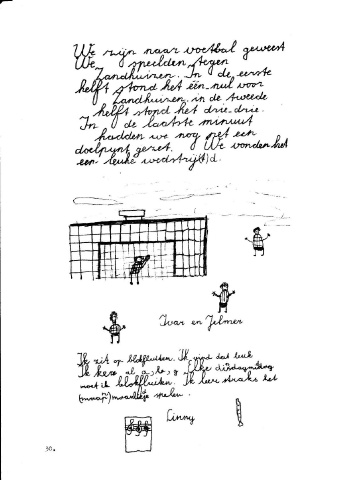 We zijn naar voetbal geweest
We speelden tegen
Zandhuizen. In de eerste
helft stond het één-nul voor
Zandhuizen. in de tweede
helft stond het drie-drie.
In de laatste minuut
hadden we nog net een
doelpunt gezet. We vonden het
een leuke wedstrij(t)d.
Ivar en Jelmer
Ik zit op blokfluiten. Ik vind dat leuk
Ik ken al a, b, g. Elke dinsdagmiddag
moet ik blokfluiten. Ik leer straks het
spelen.
Linny
30.